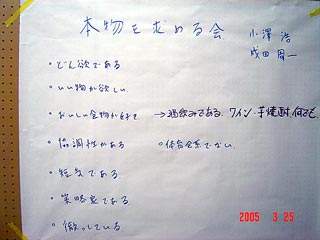 本物を求める会
小澤 浩
成田 周一
・どん欲である
・いい物が欲しい
・おいしい食物が好き →酒飲みである。ワイン・芋焼酎、何でも
・協調性がある ○体育会系でない。
・短気である
・策略家である
・徹っしている
2005 3 25